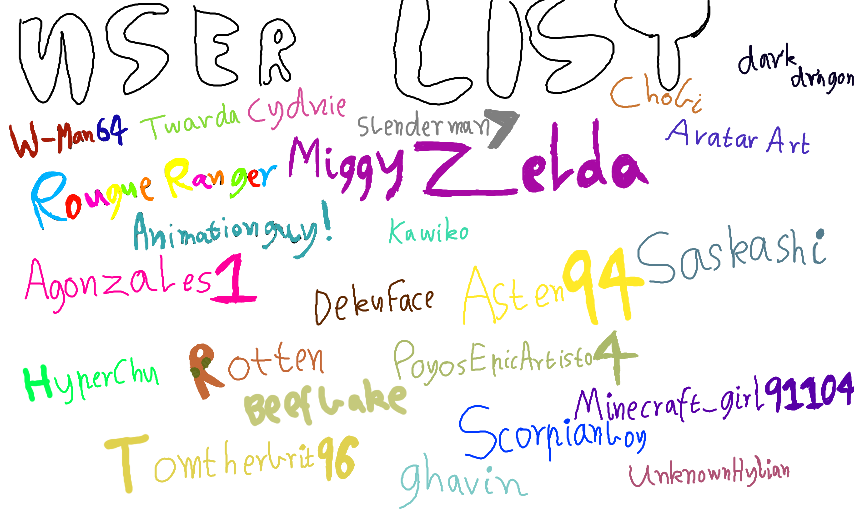 USER LIST
dark dragon
Chobi
W-Man64
Twarda
Cydnie
Slenderman7
Avatar Art
Rougue Ranger
Miggy Zelda
Animationguy!
Kawiko
Saskashi
Agonzales1
DekuFace
Asten94
HyperChu
Rotten
PoyosEpicArtisto4
Beefcake
Minecraft_girl91104
Scorpianboy
Tomtherbrit96
ghavin
UnknownHylian